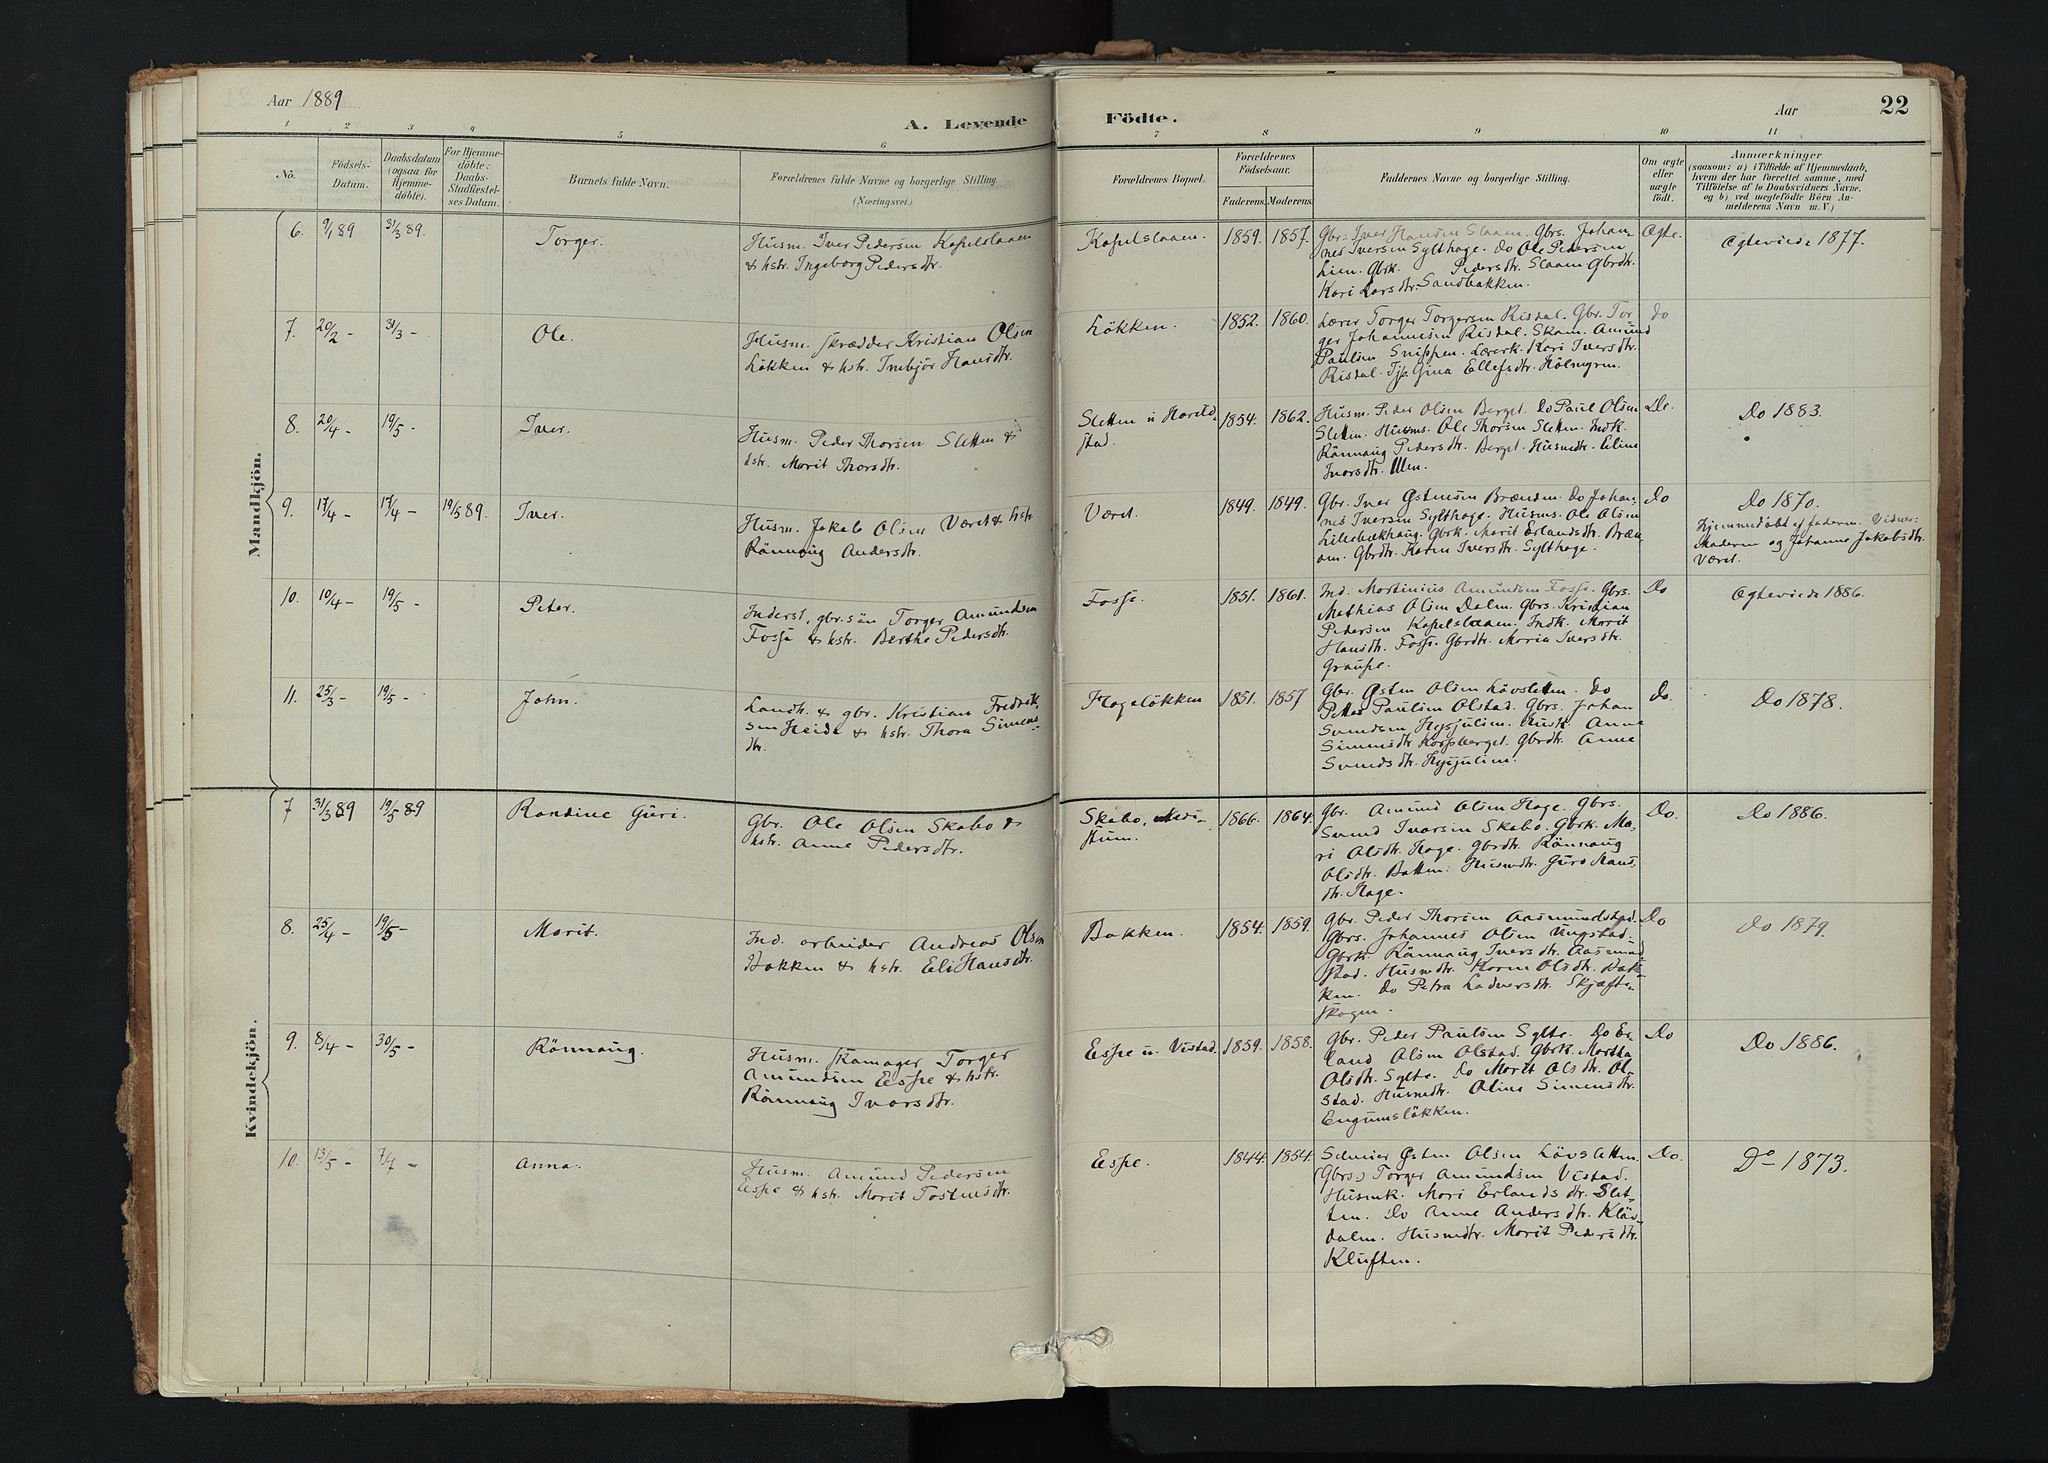 Aar 1889
A. Levende
Födte.
Aar
22
1 2 3 4 5 6 7 8 9 10 11
No.
Födsels-
Datum.
Daabsdatum
(ogsaa for
Hjemme-
döbte).
For Hjemme-
döbte:
Daabs-
Stadfæstel-
ses Datum.
Barnets fulde Navn.
Forældrenes fulde Navne og borgerlige Stilling.
(Næringsvei.)
Forældrenes Bopæl.
Forældrenes
Födselsaar.
Faderens.
Moderens.
Faddernes Navne og borgerlige Stilling.
Om ægte
eller
uægte
födt.
Anmærkninger
(saasom: a) i Tilfælde af Hjemmedaab,
hvem der har forrettet samme, med
Tilföielse af to Daabsvidners Navne.
og b) ved uægtefödte Börn An-
melderens Navn m. V.)
Mandkjön.
6. 9/1 89 31/3 89. Torger.
Husm. Iver Pedersen Kapelslaaen
& hstr. Ingeborg Pedersdtr.
Kapelslaaen. 1859. 1857.
Gbr. Iver Hansen Slaaen. Gbrs. Johan-
nes Iversen Sylthage. Do Ole Pedersen
Lien. Gbrk. Pedersdtr. Slaaen. Gbrdtr.
Kari Larsdtr. Sandbakken.
Ægte. Ægteviede 1877.
7. 20/2 - 31/3 - Ole.
Husm. skrædder Kristian Olsen
Lökken & hstr. Imbjör Hansdtr.
Lökken. 1852. 1860.
Lærer Torger Torgersen Risdal. Gbr. Tor-
ger Johannesen Risdal. Skom. Amund
Paulsen Snippen. Lærerk. Kari Iversdtr.
Risdal. Tjp. Gina Ellefsdtr. Holmgren.
do
8. 20/4 - 19/5 - Iver.
Husm. Peder Thorsen Sletten &
hstr. Marit Thorsdtr.
Sletten u Harild-
stad. 1854. 1862.
Husm. Peder Olsen Berget. Do Paul Olsen
Sletten. Husms. Ole Thorsen Sletten. Indk.
Rönnaug Pedersdtr. Berget. Husmdtr. Eline
Ivarsdtr. Ulen.
Do. Do 1883.
9. 17/4 - 17/4 - 19/5 89. Iver.
Husm. Jakob Olsen Været & hstr.
Rönnaug Andersdtr.
Været. 1849. 1849.
Gbr. Iver Østensen Brænden. Do Johan-
nes Iversen Sylthage. Husms. Ole Olsen
Lillebækhaug. Gbrk. Marit Erlandsdtr. Bræn-
den. Gbrdtr. Karen Iversdtr. Sylthage.
Do Do 1870.
Hjemmedöbt af faderen. Vidner:
Moderen og Johanne Jakobsdtr.
Været.
10. 10/4 - 19/5 - Peter.
Inderst, gbr.sön Torger Amundsen
Fosse & hstr. Berthe Pedersdtr.
Fosse. 1851. 1861.
Ind. Martinius Amundsen Fosse. Gbrs.
Mathias Olsen Dalen. Gbrs. Kristian
Pedersen Kapelslaaen. Indk. Marit
Hansdtr. Fosse. Gbrdtr. Maria Iversdtr.
Graupe.
Do Ægteviede 1886.
11. 25/3 - 19/5 - John.
Landh. & gbr. Kristian Fredrik-
sen Heide & hstr. Thora Simens-
dtr.
Flagelökken 1851. 1857
Gbr. Østen Olsen Lövsletten. Do
Petter Paulsen Olstad. Gbrs. Johan
Svendsen Hysjulien. Husk. Anne
Simensdtr. Korpberget. Gbrdtr. Anne
Svendsdtr. Hysjulien.
Do. Do 1878.
Kvindekjön.
7 31/3 89 19/5 89 Randine Guri.
Gbr. Ole Olsen Skabo &
hstr. Anne Pedersdtr.
Skabo, Medi-
stum. 1866. 1864.
Gbr. Amund Olsen Hage. Gbrs.
Svend Ivarsen Skabo. Gbrk. Ma-
ri Olsdtr. Hage. Gbrdtr. Rönnaug
Olsdtr. Batten. Husmdtr. Guro Hans-
dtr. Hage.
Do. Do 1886.
8. 25/4 - 19/5 - Marit.
Ind. arbeider Andreas Olsen
Bakken & hstr. Eli Hansdtr.
Bakken. 1854. 1859.
Gbr. Peder Thorsen Aasmundstad.
Gbrs. Johannes Olsen Ungstad.
Gbrk. Rönnaug Iversdtr. Aasmund-
stad. Husmdtr. Karen Olsdtr. Bak-
ken. Do Petra Ladversdtr. Skjæfte-
skogen.
Do Do 1879.
9. 8/4 - 30/5 - Rönnaug.
Husm. skomager Torger
Amundsen Espe & hstr.
Rönnaug Ivarsdtr.
Espe u. Vistad. 1859. 1858.
Gbr. Peder Paulsen Sylte. Do Er-
land Olsen Olstad. Gbrk. Martha
Olsdtr. Sylte. Do Marit Olsdtr. Ol-
stad. Husmdtr. Oline Simensdtr.
Engumslökken.
Do Do 1886.
10. 13/5 - 7/7 - Anna.
Husm. Amund Pedersen
Espe & hstr. Marit Tostensdtr.
Espe. 1844. 1854.
Selveier Østen Olsen Lövsletten.
(Gbrs.) Torger Amundsen Vistad.
Husmk. Mari Erlandsdtr. Slet-
ten. Do Anne Andersdtr. Klæv-
dalen. Husmdtr. Marit Pedersdtr.
Kluften.
Do. Do 1873.